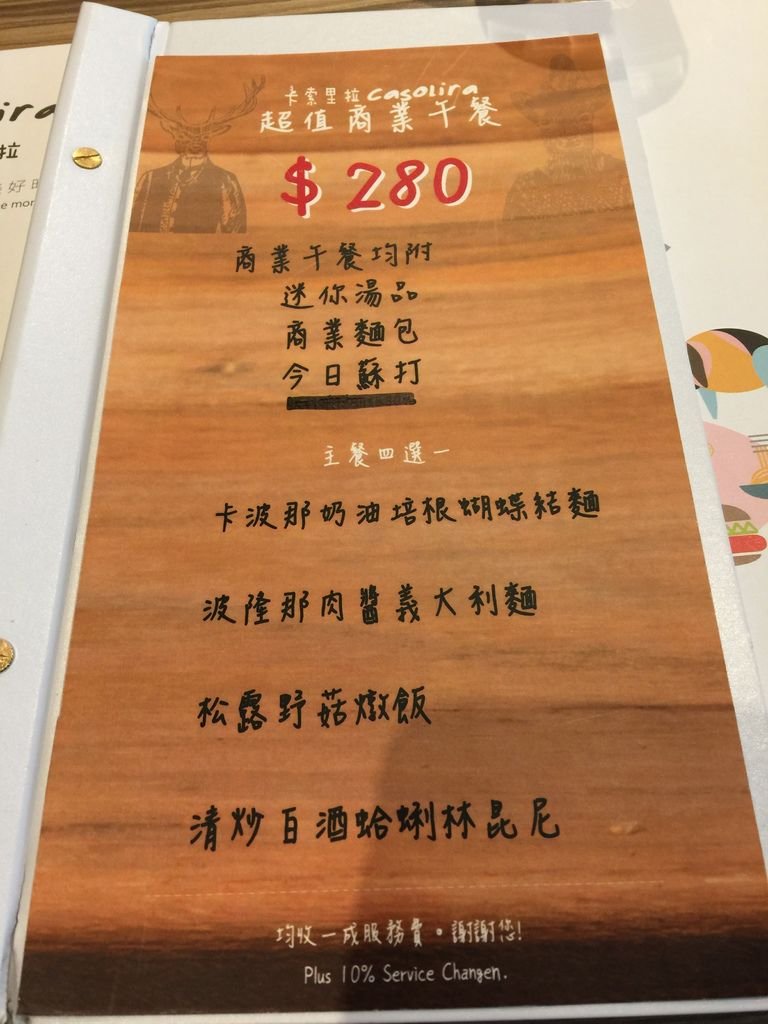 卡索里拉 casolira
超值商業午餐
$280
商業午餐均附
迷你湯品
商業麵包
今日蘇打
主餐四選一
卡波那奶油培根蝴蝶結麵
波隆那肉醬義大利麵
松露野菇燉飯
清炒白酒蛤蜊林昆尼
均收一成服務費。謝謝您!
Plus 10% Service Changen.
ira
拉
好
e mor